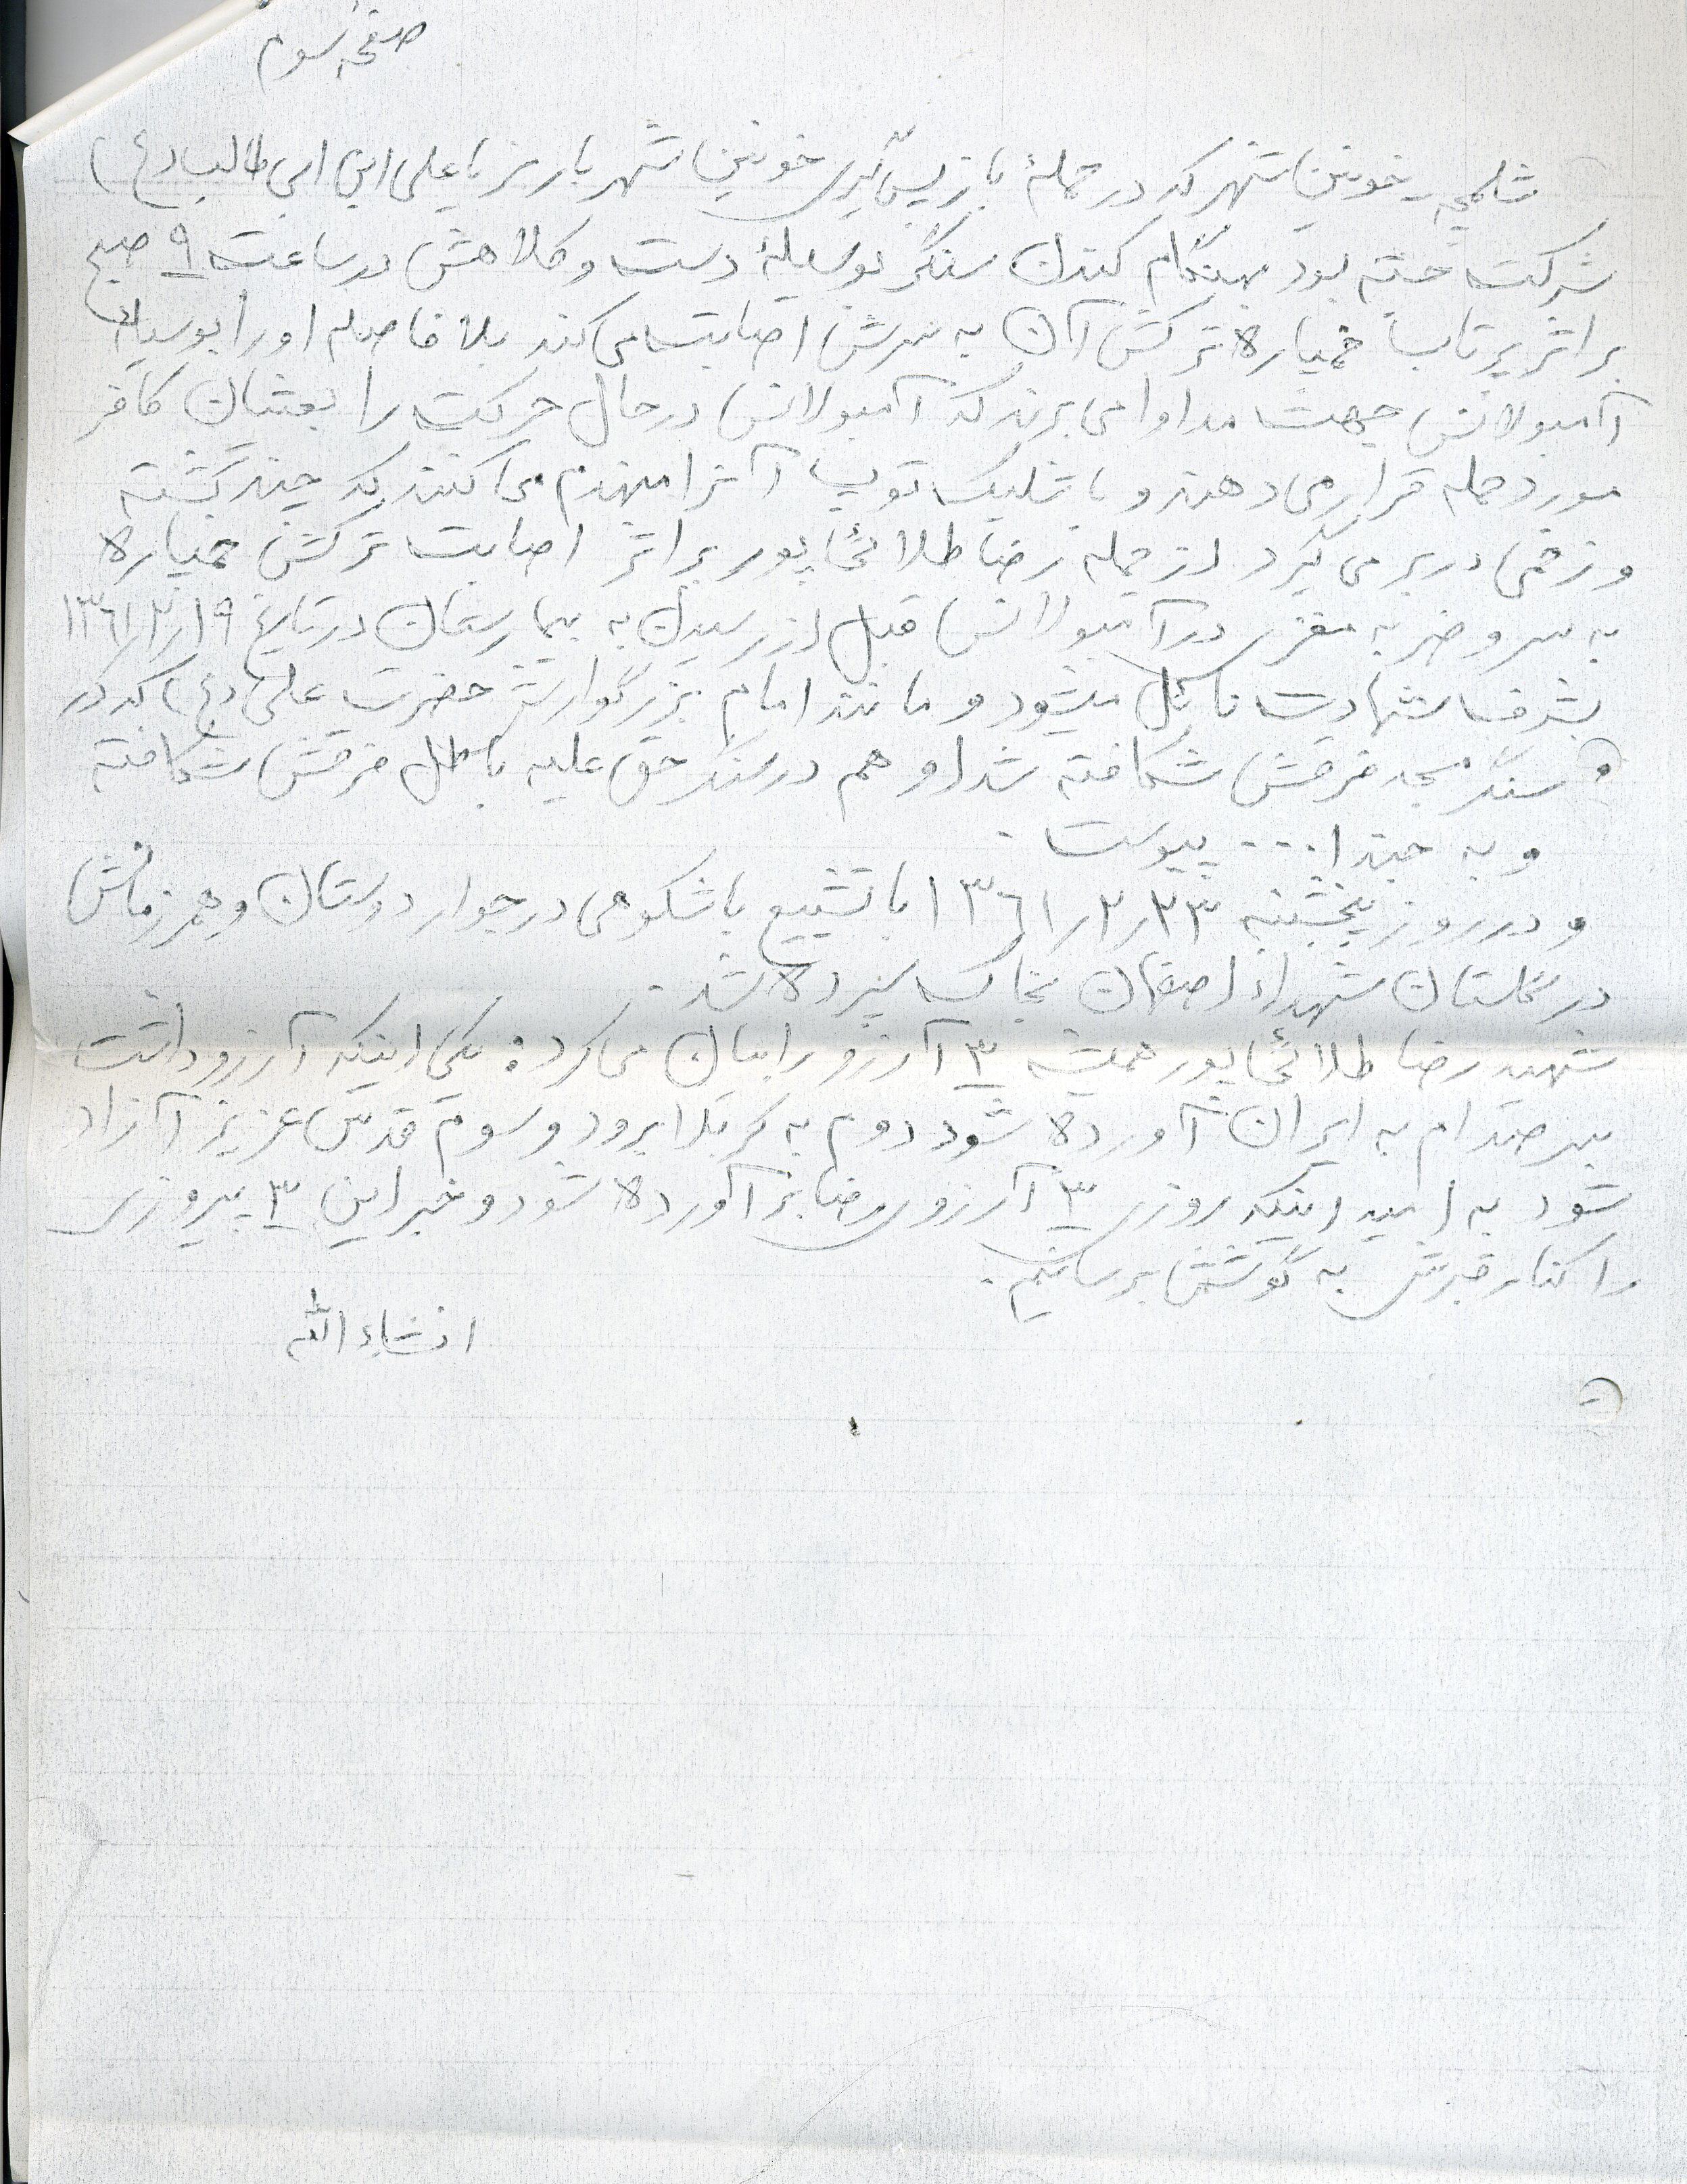 صفحه سوم
شلمچه - خونین شهر که در حملهٔ بازپس گیری خونین شهر با رمز یا علی ابن ابی طالب (ع)
شرکت جسته بود بهنگام کندن سنگر بوسیلهٔ دست و کلاهش در ساعت ۹ صبح
بر اثر پرتاب خمپاره ترکش آن به سرش اصابت می کند بلا فاصله او را بوسیله
آمبولانس جهت مداوا می برند که آمبولانس در حال حرکت را بعثیان کافر
مورد حمله قرار می دهند و با شلیک توپ آنرا منهدم می کنند که چند کشته
و زخمی در بر می گیرد از جمله رضا طلائی پور بر اثر اصابت ترکش خمپاره
به سر و ضربه مغزی در آمبولانس قبل از رسیدن به بیمارستان در تاریخ ۱۳۶۱/۲/۱۹
بشرف شهادت نائل میشود و مانند امام بزرگوارش حضرت علی (ع) که در
سنگر مسجد فرقش شکافته شد او هم در سنگر حق علیه باطل فرقش شکافته
و به جندا... پیوست.
و در روز پنجشنبه ۱۳۶۱/۲/۲۳ با تشییع باشکوهی در جوار دوستان و همرزمانش
در گلستان شهداء اصفهان بخاک سپرده شد.
شهید رضا طلائی پور همیشه ۳ آرزو را بیان می کرد: یکی اینکه آرزو داشت
سر صدام به ایران آورده شود دوم به کربلا برود و سوم قدس عزیز آزاد
شود به امید اینکه روزی ۳ آرزوی رضا بر آورده شود و خبر این ۳ پیروزی
را کنار قبرش به گوشش برسانیم.
انشاءالله